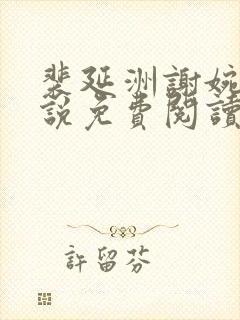 裴延洲謝婉
說免費閱讀
許留芬